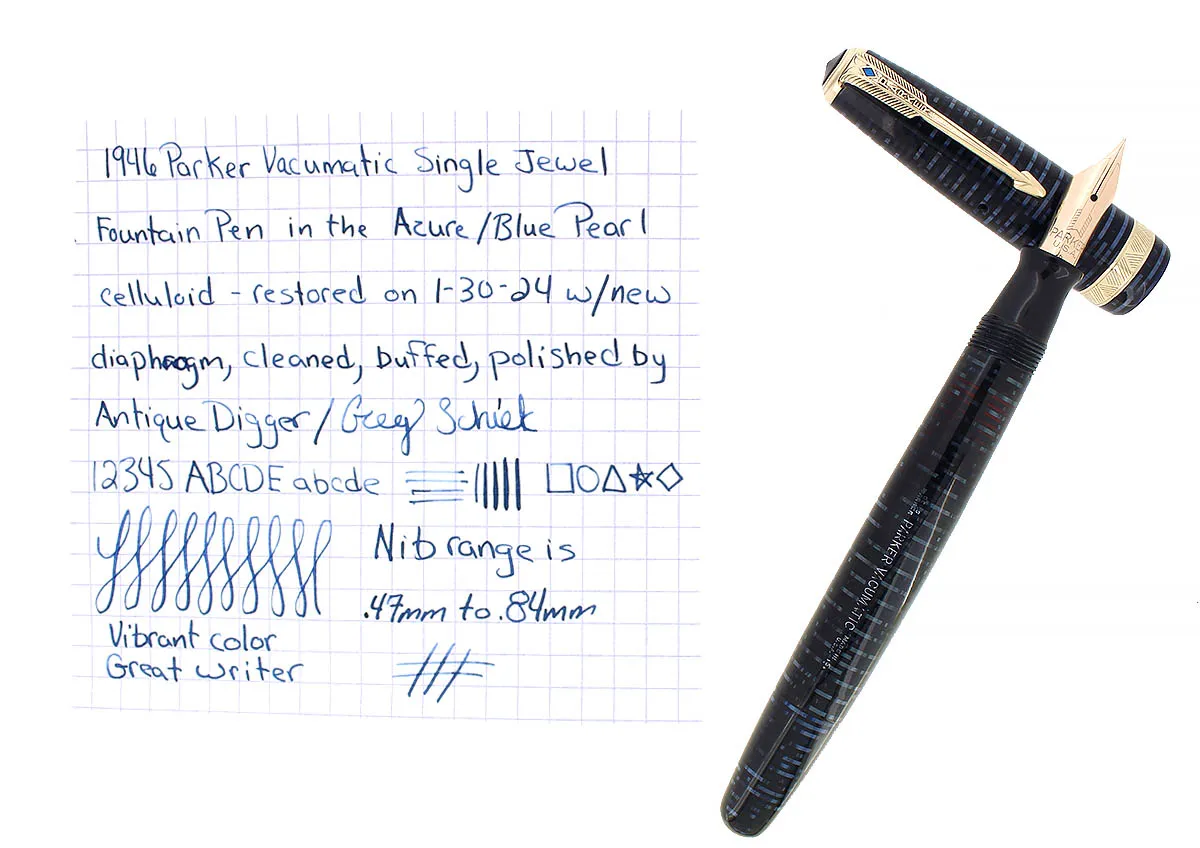 1946 Parker Vacumatic Single Jewel
Fountain Pen in the Azure/Blue Pearl
celluloid - restored on 1-30-24 w/new
diaphragm, cleaned, buffed, polished by
Antique Digger / Greg Schiek
12345 ABCDE abcde
Nib range is
.47mm to .84mm
Vibrant color
Great writer
PARKER
PARKER
U.S.A.
PARKER VACUMATIC